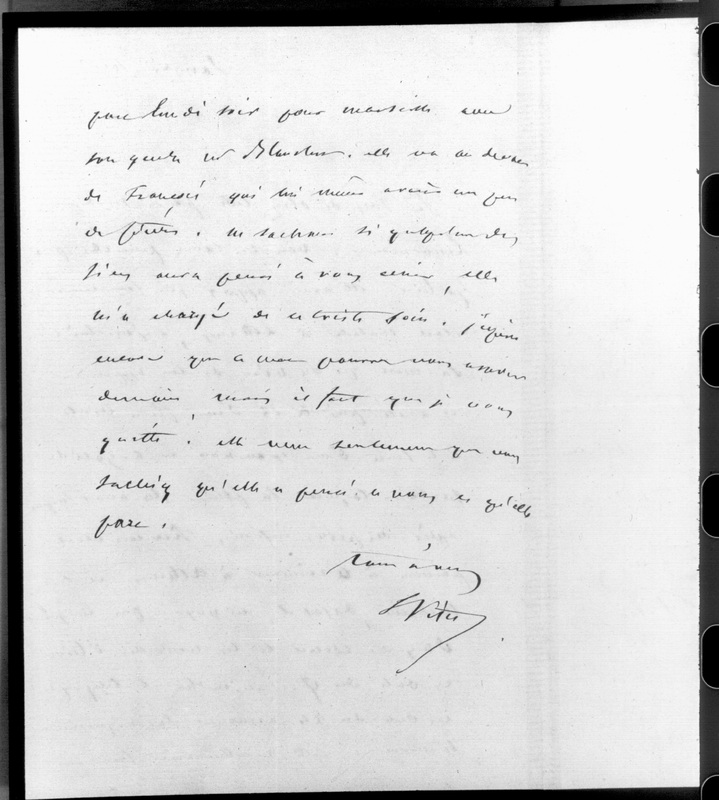 part lundi soir pour marseille avec
son gendre et Blanche. elle va au devant
de Francis qui lui même arrive un peu
de fièvre. ne sachant si quelqu'un des
siens aura pensé à vous écrire, elle
m'a chargé de ce triste soin. j'espère
encore que ce mot pourra vous arriver
demain mais il faut que je vous
quitte. elle veut seulement que vous
sachiez qu'elle a pensé a vous et qu'elle
part.
tout à vous
L Vitet